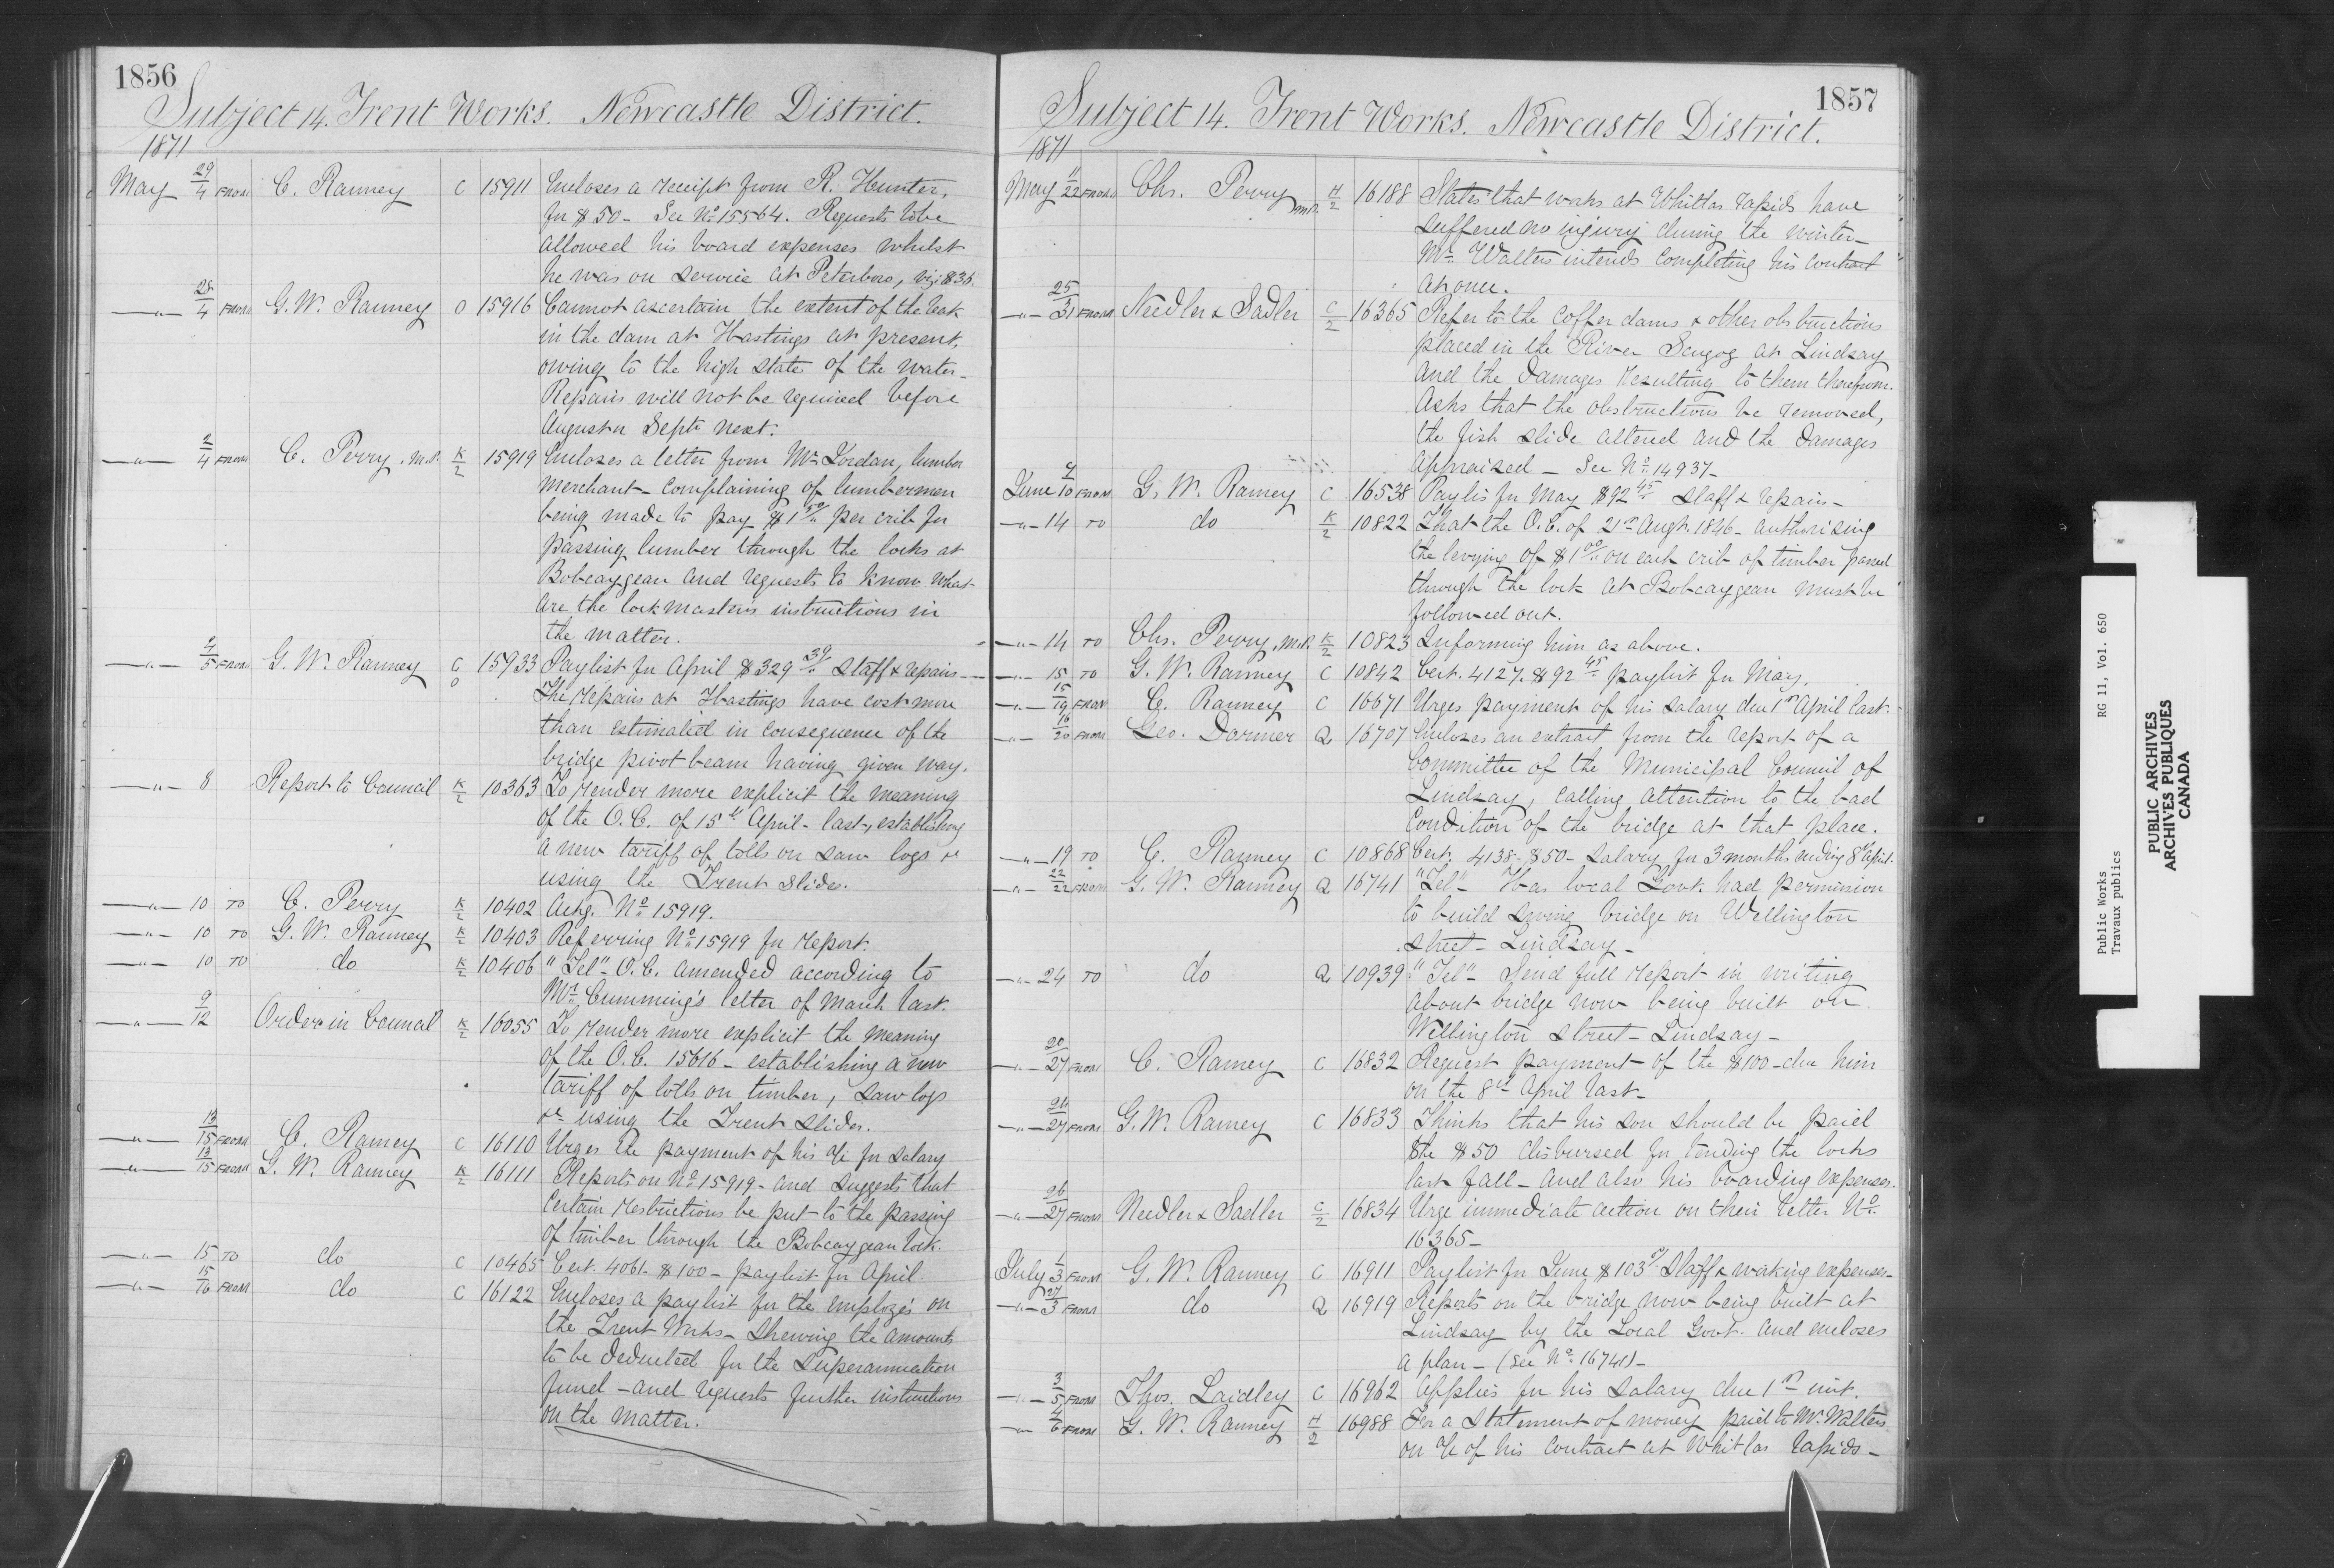 1856
Subject 14. Trent Works. Newcastle District.
1871
May 29/4 FROM C. Ranney C 15911 Encloses a receipt from R. Hunter,
for $50 - See No 15564. Requests to be
allowed his board expenses whilst
he was on service at Peterboro, viz: $36.
—"— 28/4 FROM G. W. Ranney O 15916 Cannot ascertain the extent of the leak
in the dam at Hastings at present,
owing to the high state of the water -
Repairs will not be required before
August or Septr next.
—"— 2/4 FROM C. Perry, M.P. K/2 15919 Encloses a letter from Mr Jordan, lumber
merchant - complaining of lumbermen
being made to pay $1 50/" per crib for
passing lumber through the locks at
Bobcaygean and requests to know what
are the lockmaster's instructions in
the matter.
—"— 4/5 FROM G. W. Ranney C O 15933 Paylist for April $329 39/" staff & repairs -
The repairs at Hastings have cost more
than estimated in consequence of the
bridge pivot beam having given way.
—"— 8 Report to Council K/2 10363 To render more explicit the meaning
of the O.C. of 15th April - last, establishing
a new tariff of tolls on saw logs &c
using the Trent Slides.
—"— 10 TO C. Perry K/2 10402 Ackg. No 15919.
—"— 10 TO G. W. Ranney K/2 10403 Referring No 15919 for report.
—"— 10 TO do K/2 10406 "Tel" O.C. amended according to
Mr Cumming's letter of March last.
—"— 9/12 Order in Council K/2 16055 To render more explicit the meaning
of the O.C. 15616 - establishing a new
tariff of tolls on timber, saw logs
&c using the Trent slides.
—"— 13/15 FROM C. Ranney C 16110 Urges the payment of his a/c for salary
—"— 13/15 FROM G. W. Ranney K/2 16111 Reports on No 15919 - and suggests that
certain restrictions be put to the passing
of timber through the Bobcaygean lock.
—"— 15 TO do C 10465 Cert. 4061 - $100 - paylist for April
—"— 15/16 FROM do C 16122 Encloses a paylist for the employés on
the Trent Works - shewing the amounts
to be deducted for the Superannuation
fund - and requests further instructions
on the matter.
1857
Subject 14. Trent Works. Newcastle District.
1871
May 11/22 FROM Chs. Perry M.P. H/2 16188 States that works at Whitlas rapids have
suffered no injury during the winter -
Mr. Walters intends completing his contract
at once.
—"— 25/31 FROM Needler & Sadler C/2 16365 Refer to the coffer dams & other obstructions
placed in the River Scugog at Lindsay
and the damages resulting to them therefrom.
Asks that the obstructions be removed,
the fish slide altered and the damages
appraised - See No. 14937 -
June 7/10 FROM G. W. Ranney C 16538 Paylis for May $92 45/" staff & repairs -
—"— 14 TO do K/2 10822 That the O.C. of 21st Augt. 1846 - authorising
the levying of $1 00/" on each crib of timber passed
through the lock at Bobcaygean must be
followed out.
—"— 14 TO Chs. Perry, M.P. K/2 10823 Informing him as above.
—"— 15 TO G. W. Ranney C 10842 Cert. 4127. $92 45/" paylist for May.
—"— 15/19 FROM C. Ranney C 16671 Urges payment of his salary due 1st April last.
—"— 16/20 FROM Geo. Dormer Q 16707 Encloses an extract from the report of a
Committee of the Municipal Council of
Lindsay, calling attention to the bad
condition of the bridge at that place.
—"— 19 TO C. Ranney C 10868 Cert. 4138 - $50 - salary for 3 months ending 8th April.
—"— 22/22 FROM G. W. Ranney Q 16741 "Tel" - Has local Govt. had permission
to build swing bridge on Wellington
street - Lindsay -
—"— 24 TO do Q 10939 "Tel" - Send full report in writing
about bridge now being built on
Wellington street - Lindsay -
—"— 20/27 FROM C. Ranney C 16832 Request payment of the $100 - due him
on the 8th April last -
—"— 26/27 FROM G. W. Ranney C 16833 Thinks that his son should be paid
the $50 disbursed for tending the locks
last fall - and also his boarding expenses.
—"— 26/27 FROM Needler & Sadler C/2 16834 Urge immediate action on their letter No.
16365 -
July 1/3 FROM G. W. Ranney C 16911 Paylist for June $103 staff & working expenses -
—"— 27/3 FROM do Q 16919 Reports on the bridge now being built at
Lindsay by the Local Govt. and encloses
a plan - (See No. 16741) -
—"— 3/5 FROM Thos. Laidley C 16962 Applies for his salary due 1st inst.
—"— 4/6 FROM G. W. Ranney H/2 16988 For a statement of money paid to Mr. Walters
on a/c of his contract at Whitlas rapids -
Public Works RG 11, Vol. 650
Travaux publics
PUBLIC ARCHIVES
ARCHIVES PUBLIQUES
CANADA